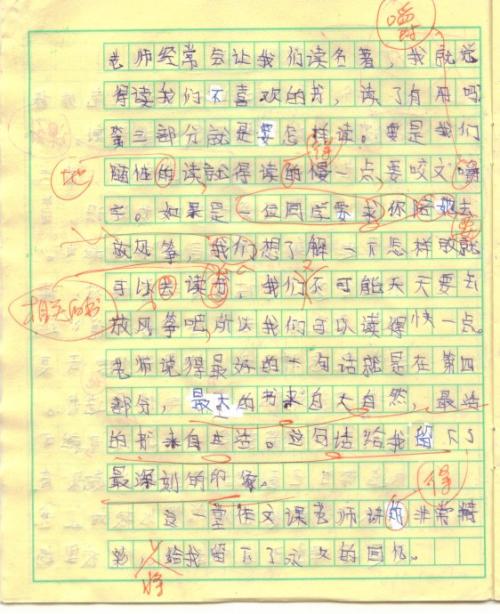 嚼
老师经常会让我们读名著，我就觉
得读我们不喜欢的书，读了有用吗
第三部分就是要怎样读。要是我们
得
地
随性的读就得读的慢一点，要咬文嚼
字。如果是一位同学要求你陪她去
放风筝，我们想了解一下怎样放就
可以去读书，我们不可能天天要去
相关的书
放风筝吧，所以我们可以读得快一点。
老师说得最好的一句话就是在第四
部分，最大的书来自大自然，最活
的书来自生活。这句话给我留下了
最深刻的印象。
得
这一堂作文课老师讲的非常精
彩，给我留下了永久的回忆。
将